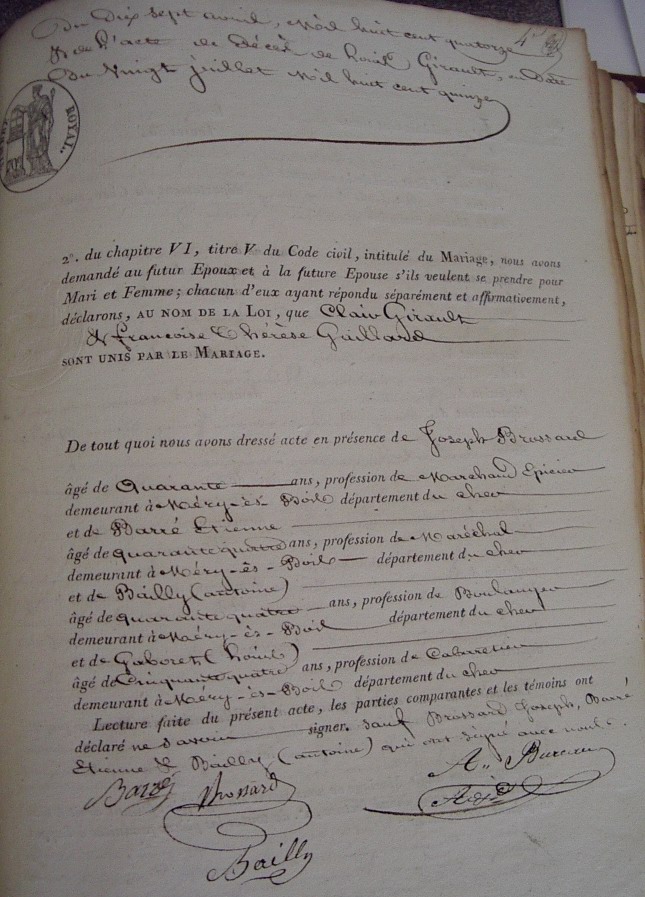 Du Dix sept avril, Mil huit cent quatorze
4° de l'acte de Décès de Louis Girault, en Date
Du Vingt juillet Mil huit cent quinze
ROYAL.
2°. du chapitre VI, titre V du Code civil, intitulé du Mariage, nous avons
demandé au futur Epoux et à la future Epouse s'ils veulent se prendre pour
Mari et Femme; chacun d'eux ayant répondu séparément et affirmativement,
déclarons, AU NOM DE LA LOI, que Clair Girault
& francoise Thérèse Guillard
SONT UNIS PAR LE MARIAGE.
De tout quoi nous avons dressé acte en présence de Joseph Brossard
âgé de Quarante ans, profession de Marchand Epicier
demeurant à Méry-ès-Bois département du cher
et de Barré Etienne
âgé de quarante quatre ans, profession de Maréchal
demeurant à Méry-ès-Bois département du cher
et de Bailly (antoine)
âgé de quarante quatre ans, profession de Boulanger
demeurant à Méry-ès-Bois département du cher
et de Gaboret (Louis)
âgé de Cinquante quatre ans, profession de Cabaretier
demeurant à Méry-ès-Bois département du cher
Lecture faite du présent acte, les parties comparantes et les témoins ont
déclaré ne savoir signer. sauf Brossard Joseph, Barré
Etienne & Bailly (antoine) qui ont signé avec nous.
Barré Brossard
Bailly